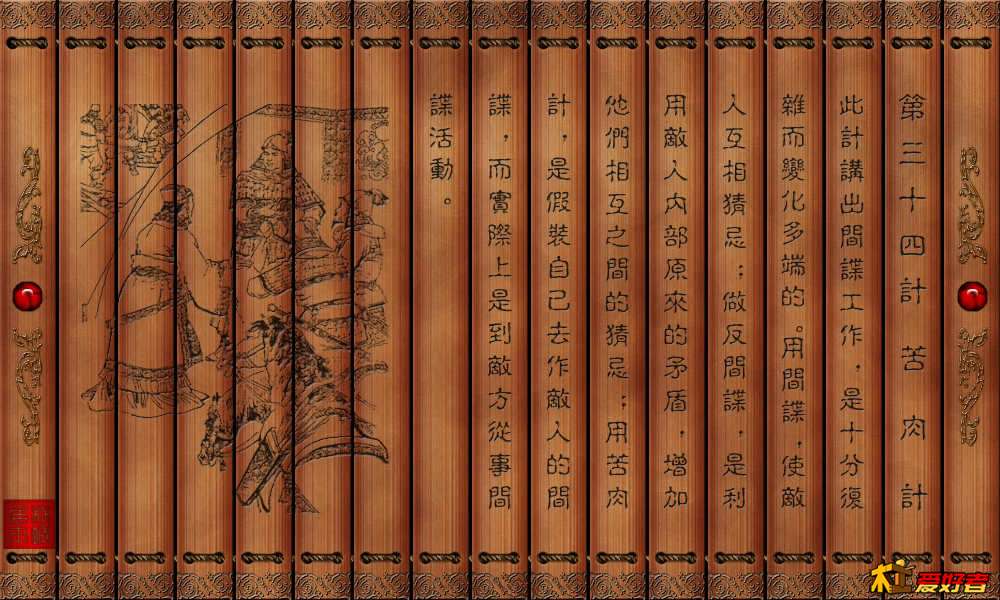 第三十四計 苦肉計
此計講出間諜工作，是十分復
雜而變化多端的。用間諜，使敵
人互相猜忌；做反間諜，是利
用敵人內部原來的矛盾，增加
他們相互之間的猜忌；用苦肉
計，是假裝自己去作敵人的間
諜，而實際上是到敵方從事間
諜活動。
爱好者